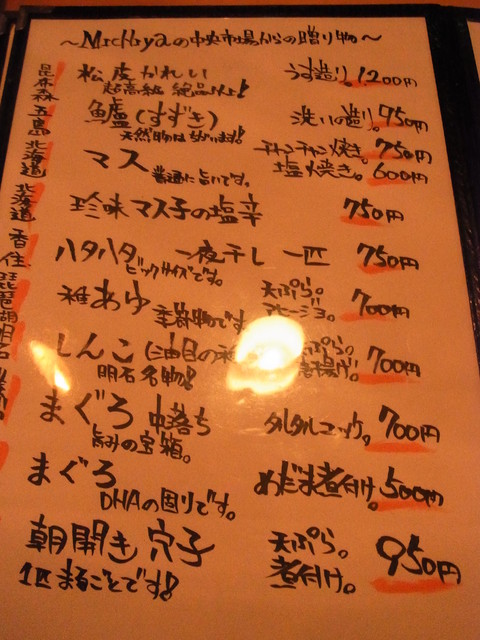 ～Michiyaの中央市場からの贈り物～
昆布森 松皮かれい うす造り。1200円
超高級 絶品ですよ!
五島 鱸(すずき) 洗いの造り。950円
天然物はちがいます!
北海道 マス チャンチャン焼き。750円
普通に旨いです。 塩焼き。600円
北海道 珍味マス子の塩辛 750円
香住 ハタハタ 一夜干し 一匹 750円
ビックサイズです。
琵琶湖 稚あゆ 天ぷら。 700円
季節物です アヒージョ。
明石 しんこ 天ぷら。 700円
明石名物! 唐揚げ。
まぐろ 中落ち タルタルユッケ。700円
旨みの宝箱。
まぐろ めだま煮付け。500円
DHAの固りです。
朝開き穴子 天ぷら。 950円
1匹まるごとです! 煮付け。